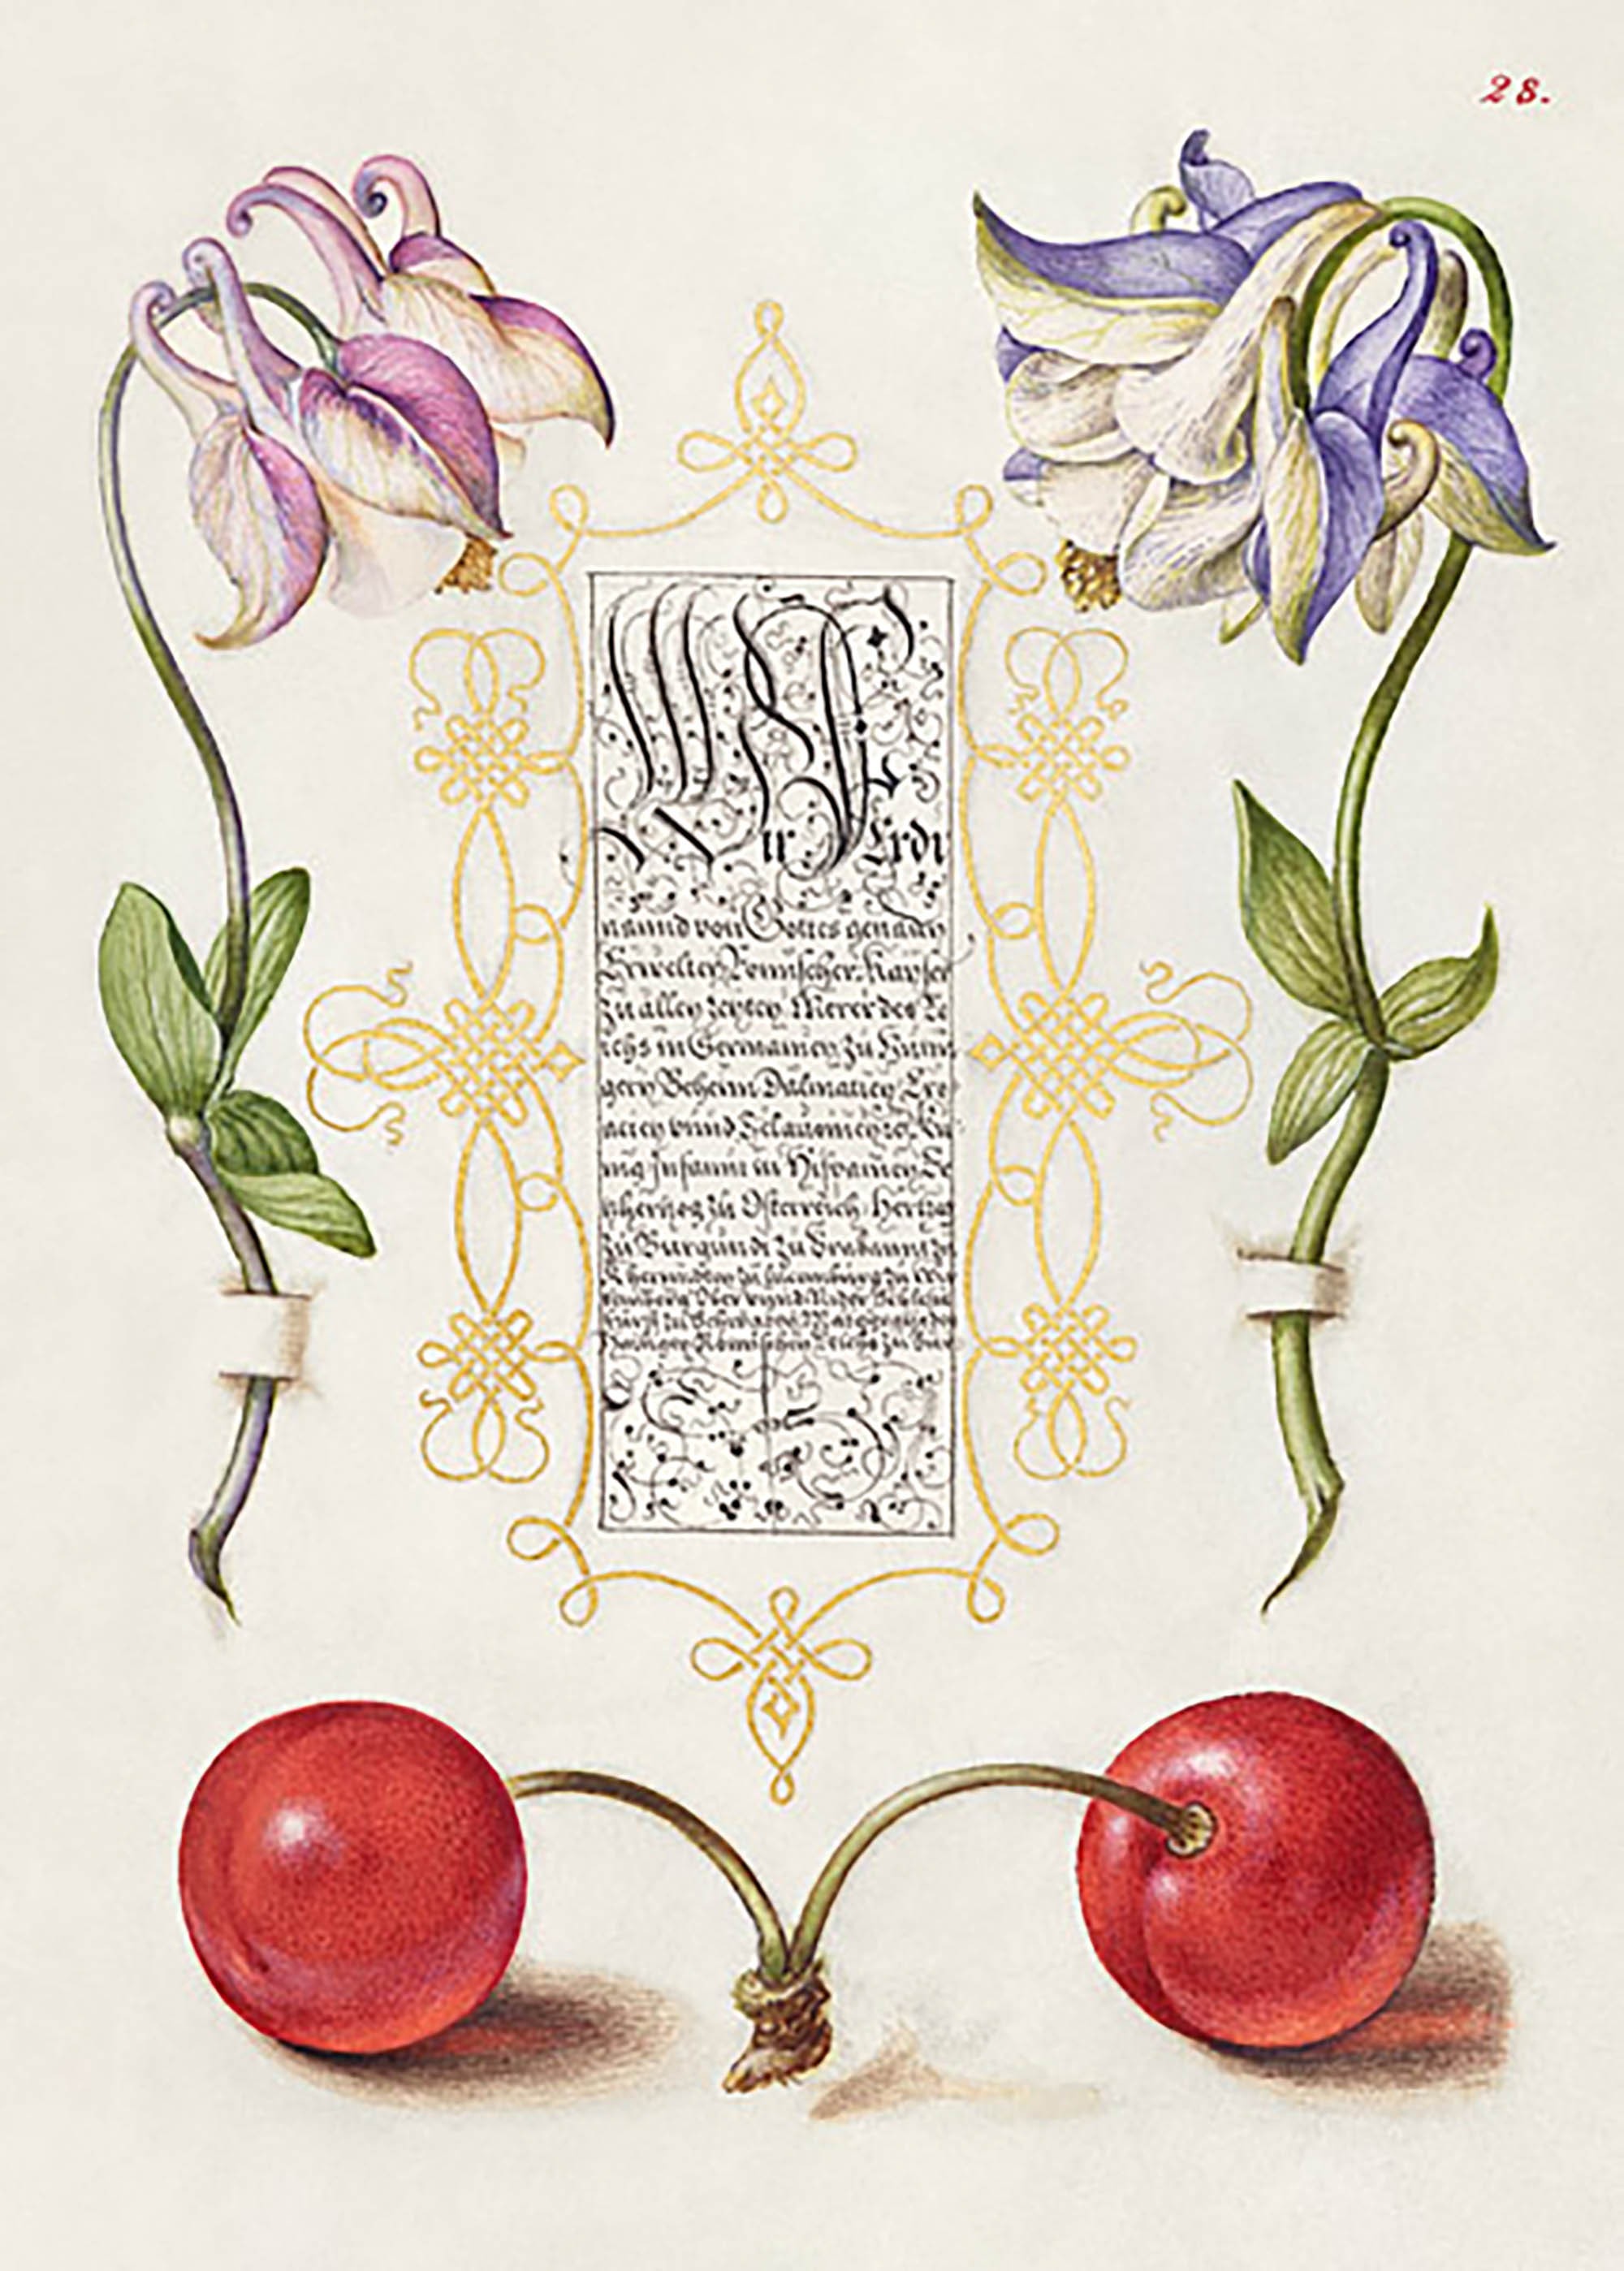 28.
Wir Ferdi
nannd von Gottes genaden
Erwelter Römischer Kayser
zu allen zeyten Merer des Re
ichs in Germanien zu Hunn
gern Beheim Dalmatien Cro
acien vnnd Sclauonien zc. Ku
nig Infannt in Hispanien Er
zherzog zu Osterreich Hertzog
zu Burgundi zu Brabannt zu
zu Lucemburg zu
Ober vnnd Nider
zu Schwaben Marggraue des
Römischen Reichs zu Bur